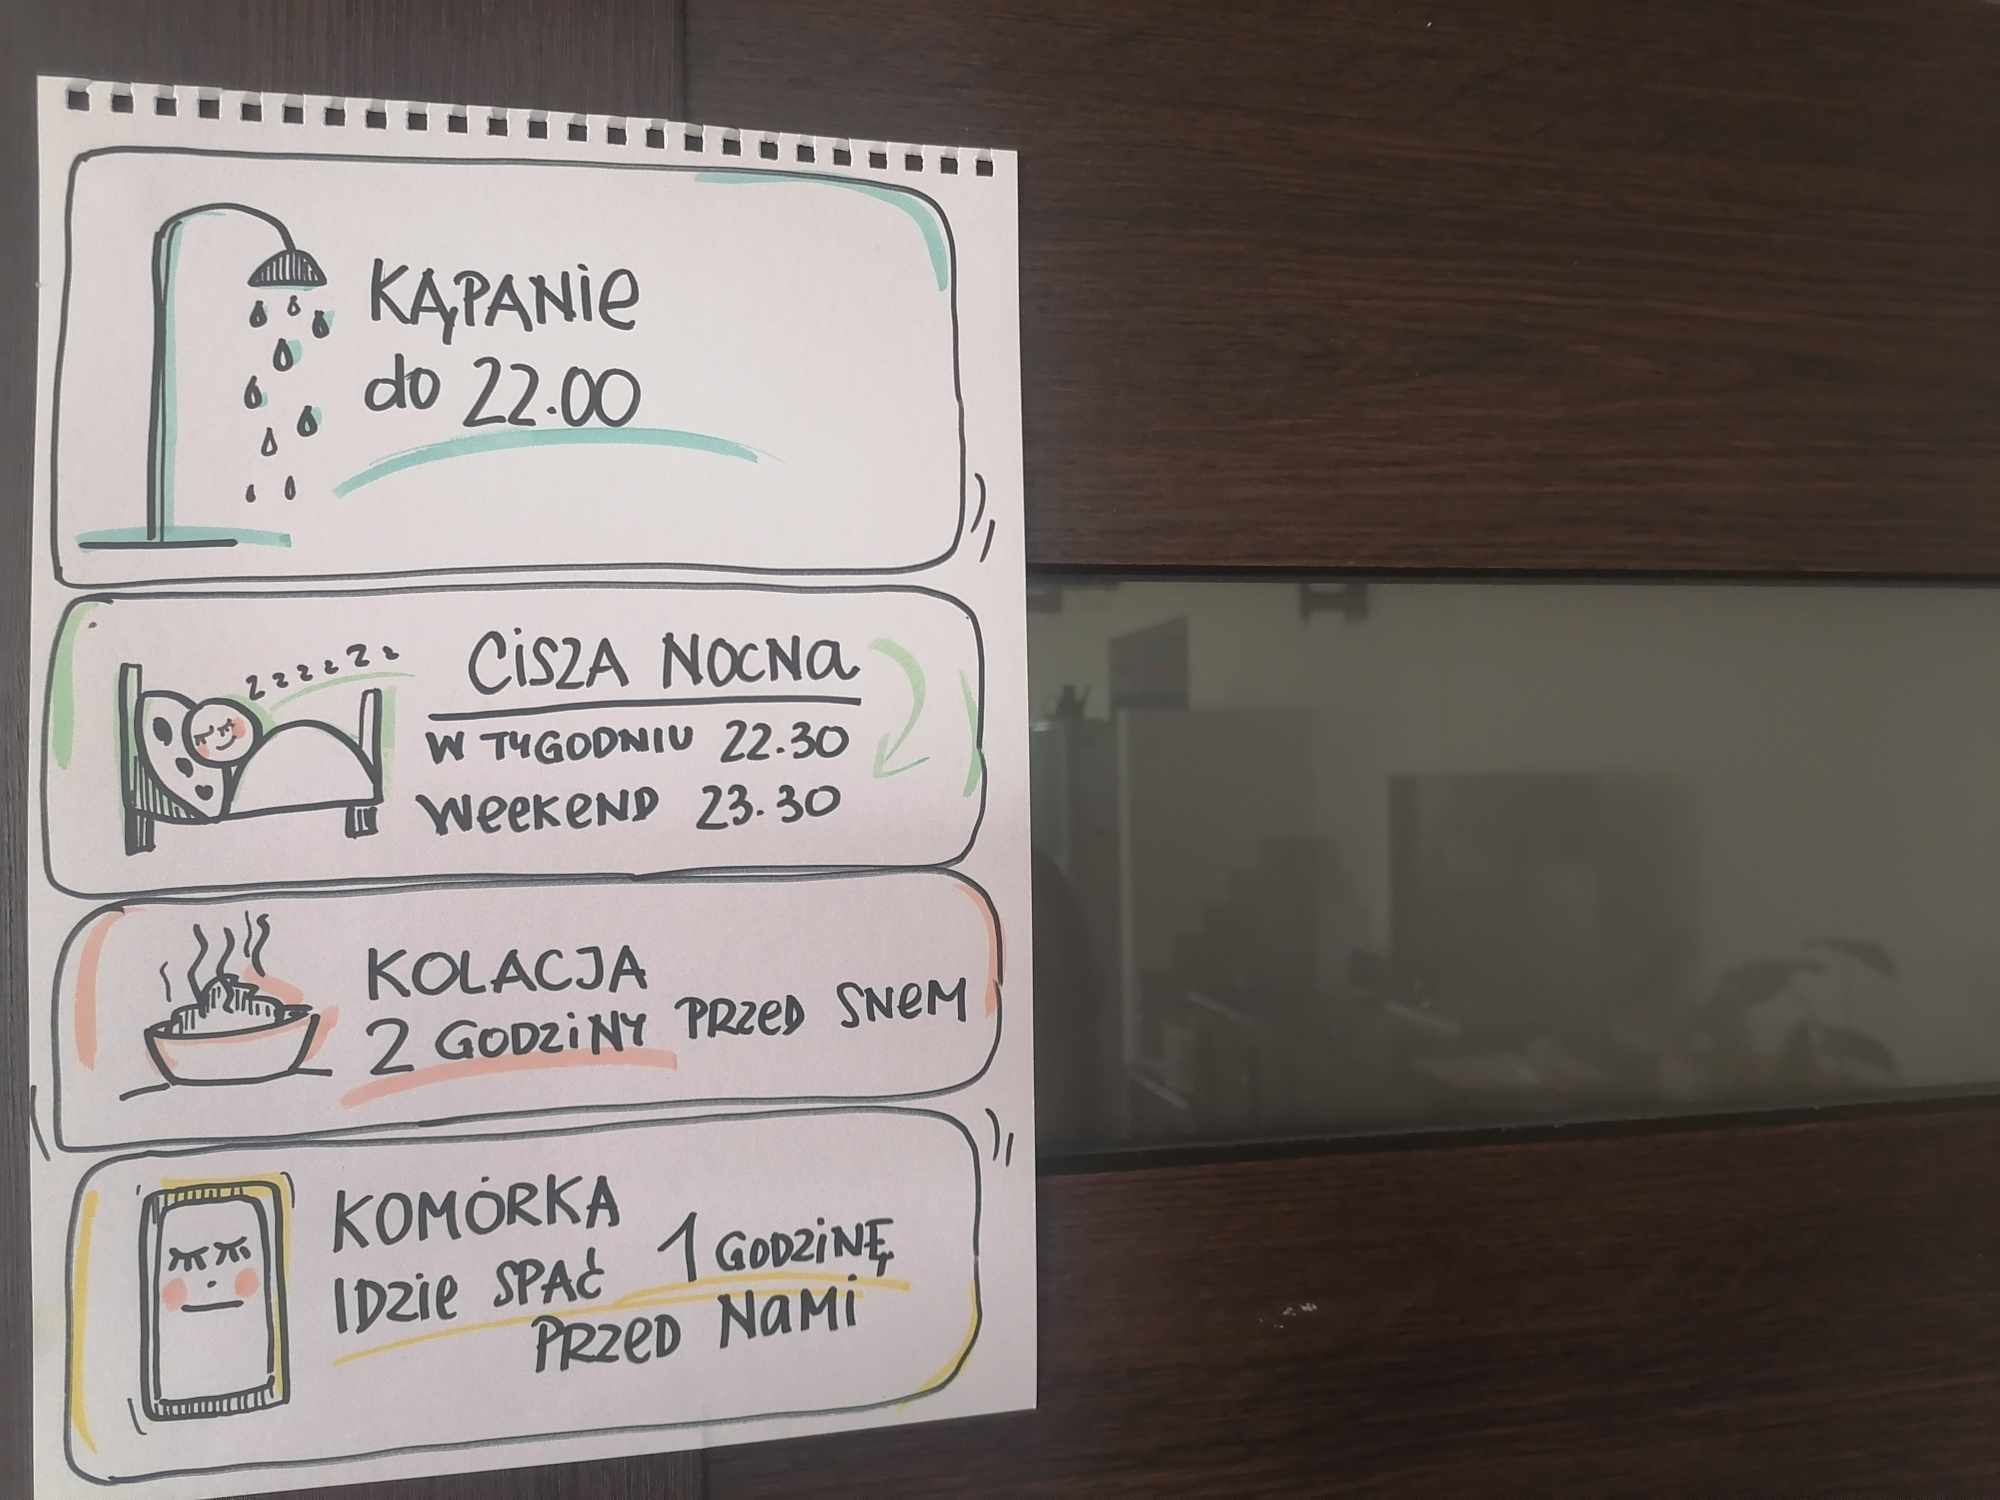 KĄPANIE
do 22.00
zzzzzz
CISZA NOCNA
W TYGODNIU 22.30
WEEKEND 23.30
KOLACJA
2 GODZINY PRZED SNEM
KOMÓRKA
IDZIE SPAĆ 1 GODZINĘ
PRZED NAMI